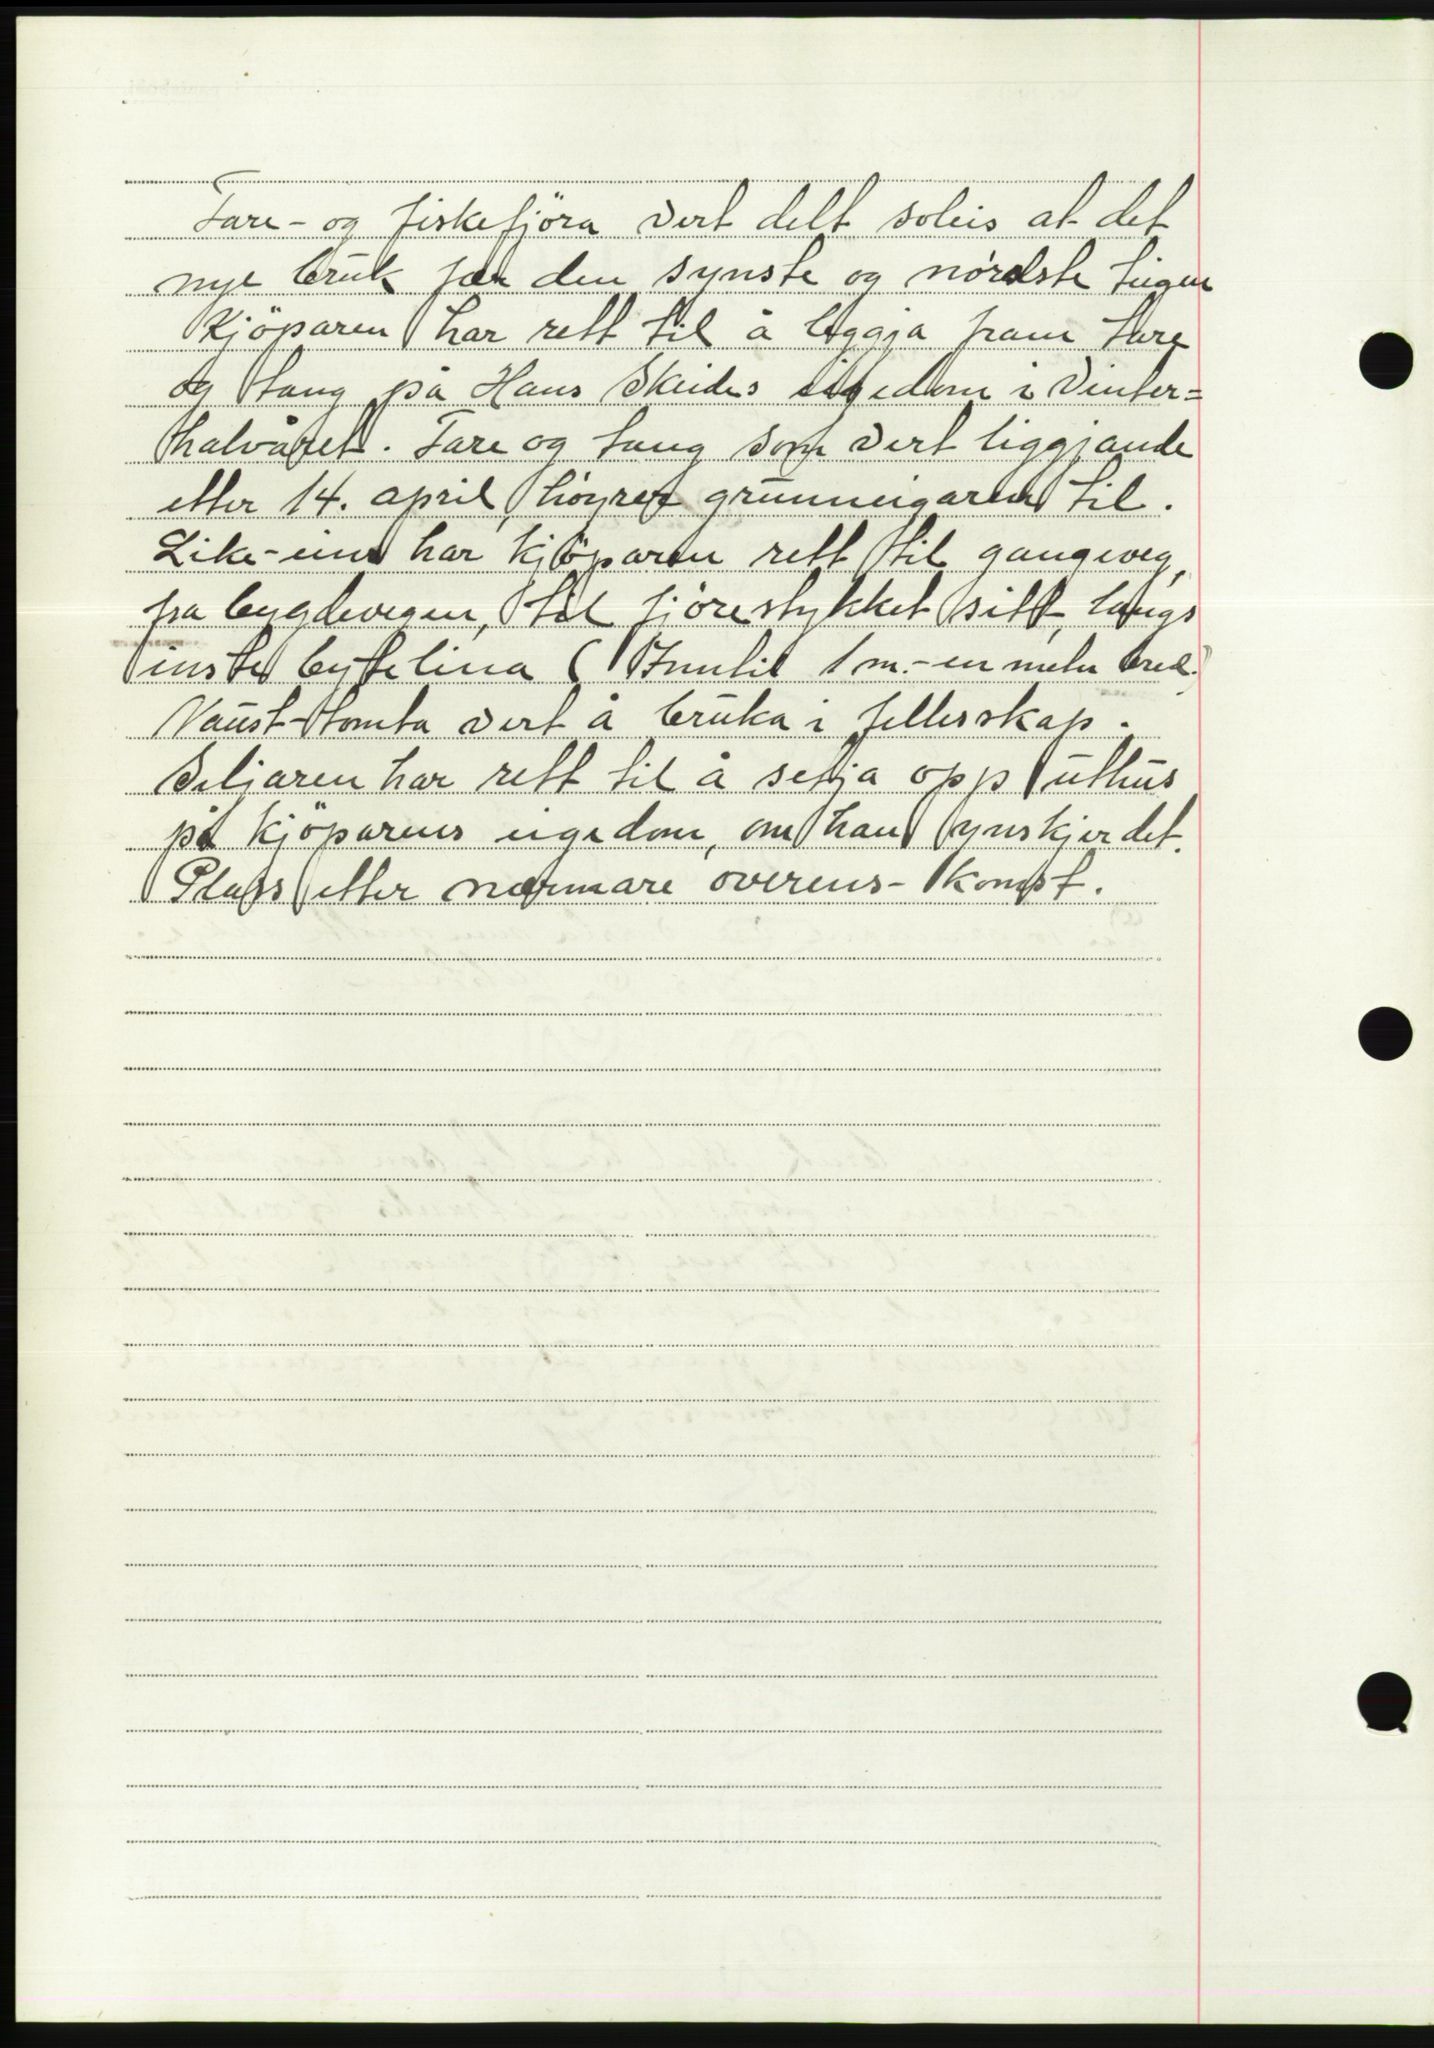 Tare- og fiskefjöra vert delt soleis at det
nye bruk fær den synste og nørdste teigen
Kjöparen har rett til å leggja fram tare
og tang på Hans Skeides eigedom i vinter=
halvåret. Tare og tang som vert liggjande
etter 14. april, høyrer grunneigaren til.
Like-eins har kjöparen rett til gangeveg,
fra bygdevegen, til fjörestykket sitt, langs
inste bytelina ( Inntil 1 m.-en meter bred.)
Naust-tomta vert å bruka i fellesskap.
Seljaren har rett til å setja opp uthus
på kjöparens eigedom, om han ynskjer det.
Plass etter nærmare overens-komst.